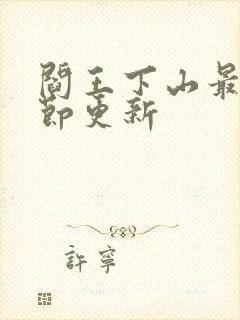 閻王下山最
節更新
許寧